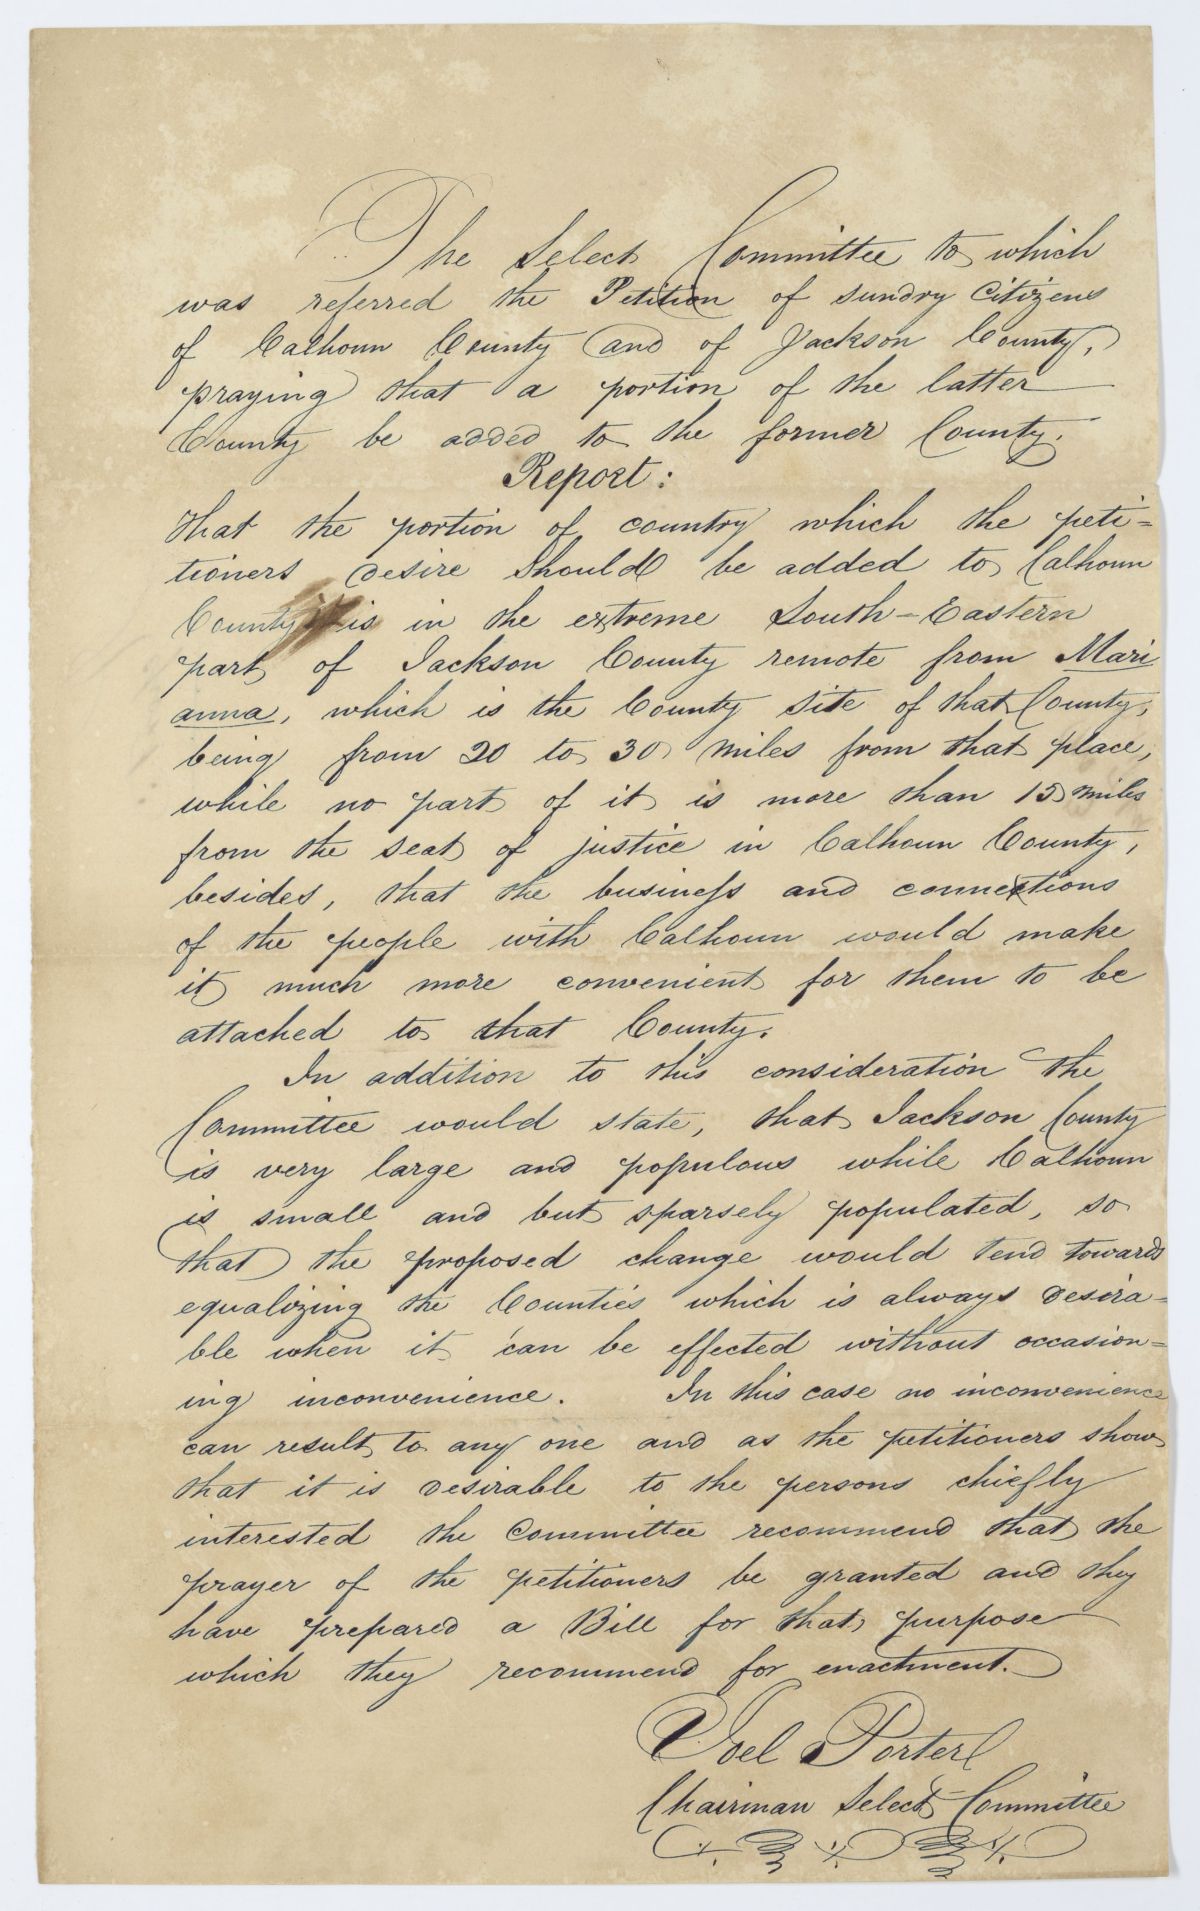 The Select Committee to which
was referred the Petition of sundry Citizens
of Calhoun County and of Jackson County,
praying that a portion of the latter
County be added to the former County.
Report:
That the portion of country which the peti=
tioners desire should be added to Calhoun
County is in the extreme South-Eastern
part of Jackson County remote from Mari
anna, which is the County site of that County,
being from 20 to 30 miles from that place,
while no part of it is more than 15 miles
from the seat of justice in Calhoun County,
besides, that the business and connections
of the people with Calhoun would make
it much more convenient for them to be
attached to that County.
In addition to this consideration the
Committee would state, that Jackson County
is very large and populous while Calhoun
is small and but sparsely populated, so
that the proposed change would tend towards
equalizing the Counties which is always desira=
ble when it can be effected without occasion=
ing inconvenience. In this case no inconvenience
can result to any one and as the petitioners show
that it is desirable to the persons chiefly
interested the Committee recommend that the
prayer of the petitioners be granted and they
have prepared a Bill for that purpose
which they recommend for enactment.
Joel Porter
Chairman Select Committee